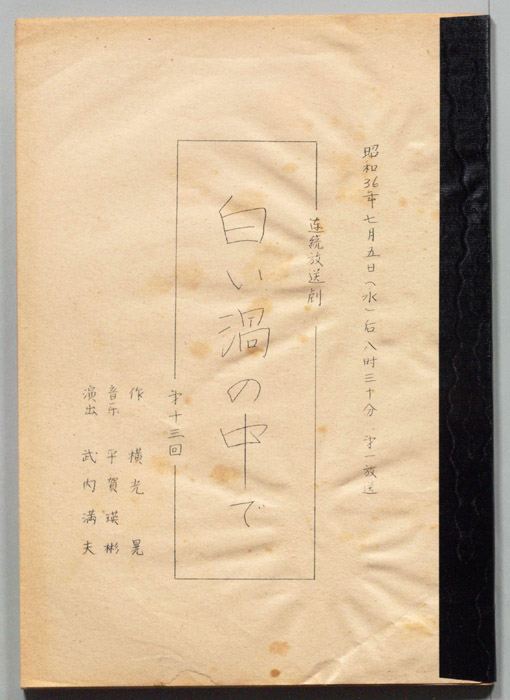 昭和36年七月五日(水)后八时三十分 㐧一放送
连続放送劇
白い渦の中で
㐧十三回
作 横光晃
音乐 平賀瑛彬
演出 武内満夫